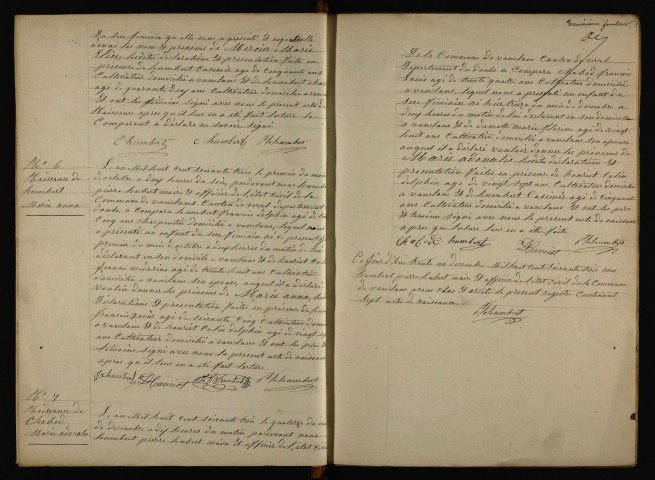 Du sexe féminin qu'elle nous a présenté et auquel elle
donné les nom et prénoms de Mercier Marie
présence de humbert Casimir agé de cinquante ans
Cultivateur domicilié a vanclans et de humbert
agé de quarante deux ans Cultivateur domicilié a vanclans
Et ont les témoins signé avec nous le présent acte de
Naissance après qu'il leur en a été fait lecture la
Comparant a déclaré ne savoir signé
C humbert Phhumbert
No 6
Naissance de
humbert
Marie anna
L'an Mil huit cent soixante trois le premier du mois
d'octobre a deux heures du soir pardevant nous humbert
pierre hubert maire et officier de l'état civil de la
Commune de vanclans Canton de vercel département
doubs, a Comparu humbert françois delphin agé de
Cinq ans charpentier domicilié a vanclans, lequel nous
a présenté un enfant du sexe féminin né le présent
premier du mois d'octobre a deux heures du matin de lui
déclarant en son domicile a vanclans et de humbert
agé de trente huit ans Cultivatrice
domiciliée a vanclans son épouse, auquel il a déclaré
vouloir donner les prénoms de Marie anna,
Déclarations et présentation faite en présence de
françois xavier agé de soixante Cinq ans Cultivateur
a vanclans et de henriot Colin delphin agé de vingt sept
ans Cultivateur domicilié a vanclans Et ont les père
témoins signé avec nous le présent acte de naissance
après qu'il leur en a été fait lecture
humbert Henriot Phhumbert
No 7
Naissance de
Chabod
Marie adonalie
L'an Mil huit cent soixante trois le quatorze du mois
de décembre a dix heures du matin pardevant nous
humbert pierre hubert maire et officier de l'état civil
De la Commune de vanclans Canton de vercel
Département du doubs a Comparu Chabod françois
Louis agé de trente quatre ans Cultivateur domicilié
a vanclans, lequel nous a présenté un enfant du
sexe féminin né hier treize du mois de décembre a
deux heures du matin de lui déclarant en son domicile
a vanclans et de marie florine agé de vingt
huit ans Cultivatrice domiciliée a vanclans son épouse
auquel il a déclaré vouloir donner les prénoms de
Marie adonalie, lesdites déclarations et
présentation faite en présence de henriot Colin
delphin agé de vingt sept ans Cultivateur domicilié
a vanclans et de humbert Casimir agé de cinquante
ans Cultivateur domicilié a vanclans Et ont les père
et témoins signé avec nous le présent acte de naissance
après que lecture leur en a été faite
Chabod humbert Henriot Phhumbert
Ce jourd'hui trente un décembre Mil huit cent soixante trois nous
humbert pierre hubert maire et officier de l'état civil de la Commune
de vanclans avons clos et arrêté le présent registre Contenant
sept actes de naissances
Phhumbert